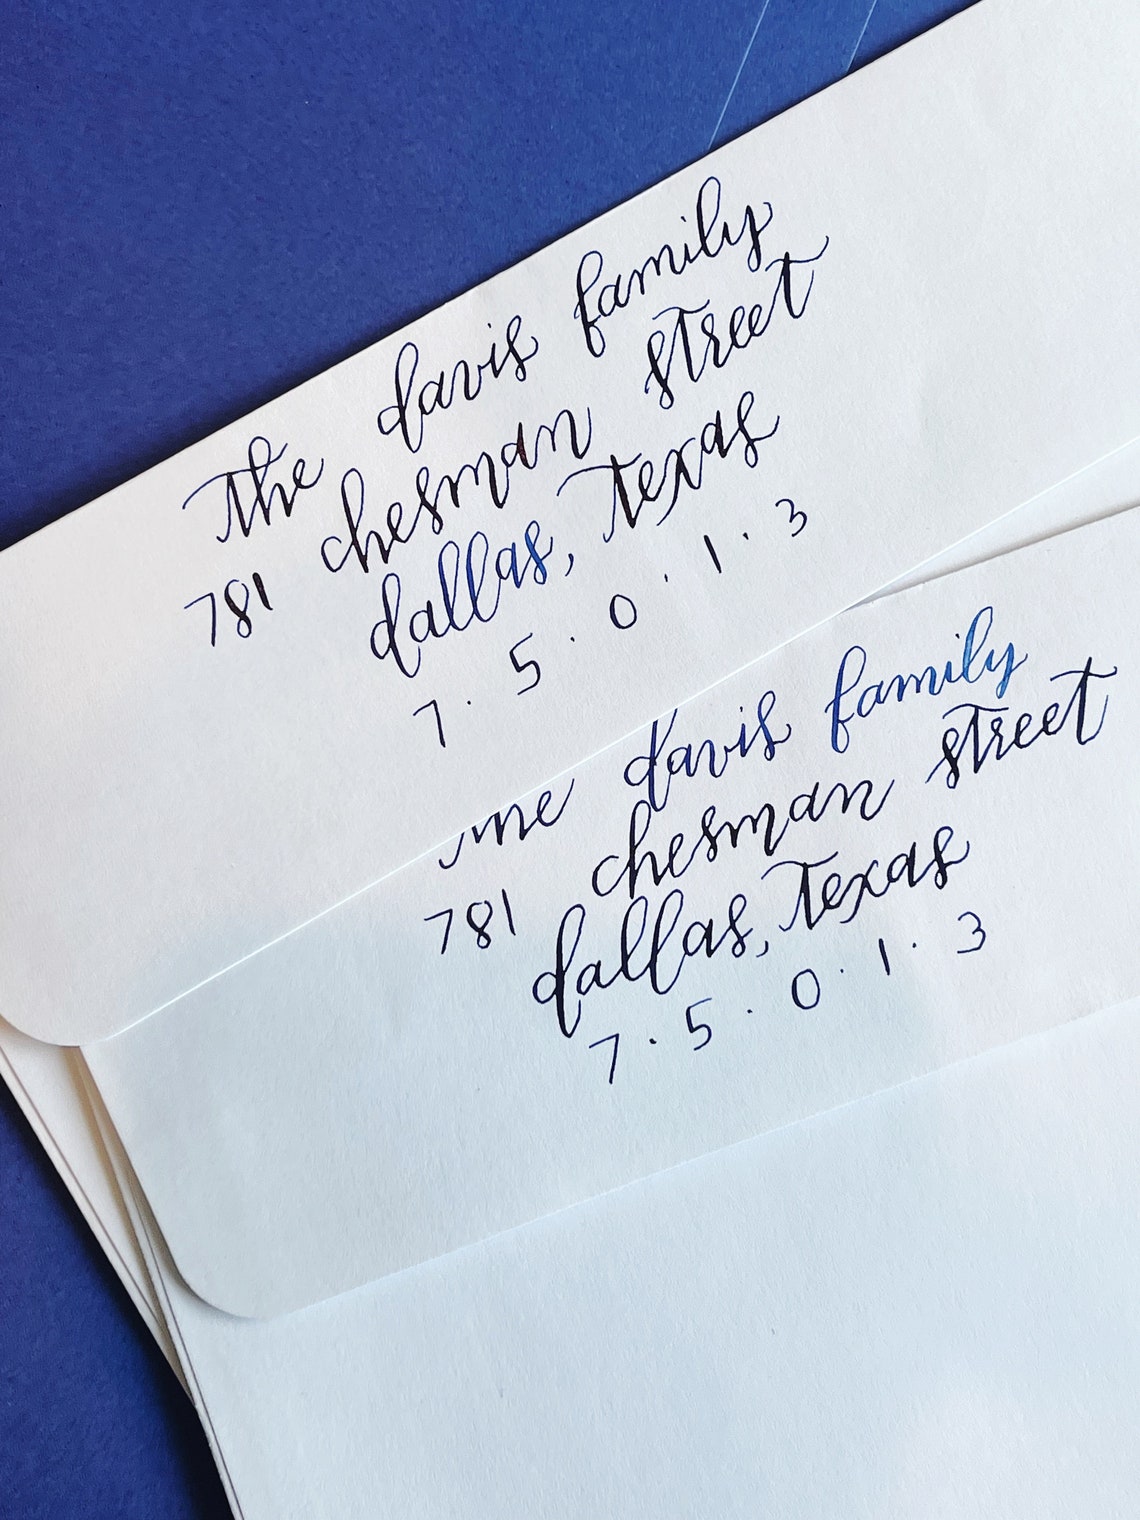 The davis family
781 chesman street
dallas, Texas
7 · 5 · 0 · 1 · 3
The davis family
781 chesman street
dallas, Texas
7 · 5 · 0 · 1 · 3